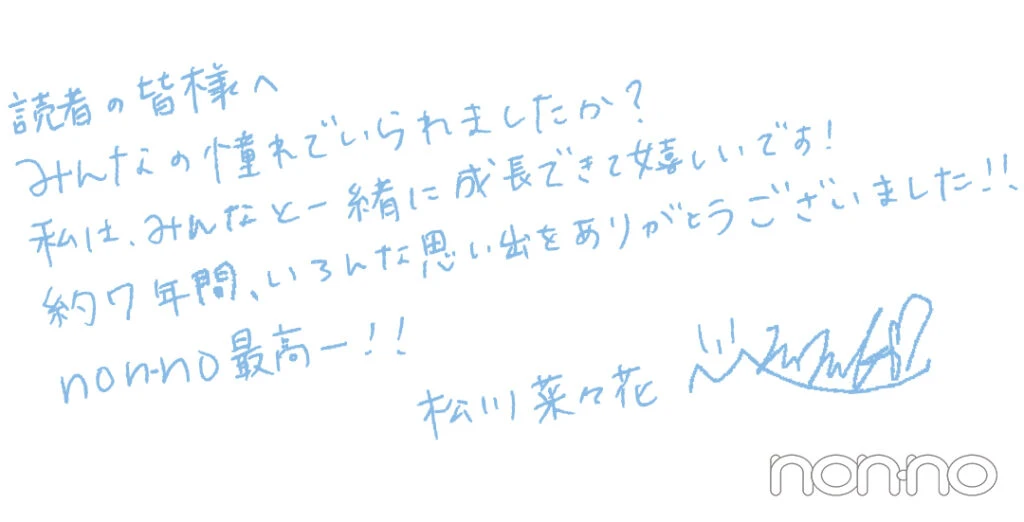 読者の皆様へ
みんなの憧れでいられましたか?
私は、みんなと一緒に成長できて嬉しいです!
約7年間、いろんな思い出をありがとうございました!!
non-no最高ー!!
松川菜々花
non-no